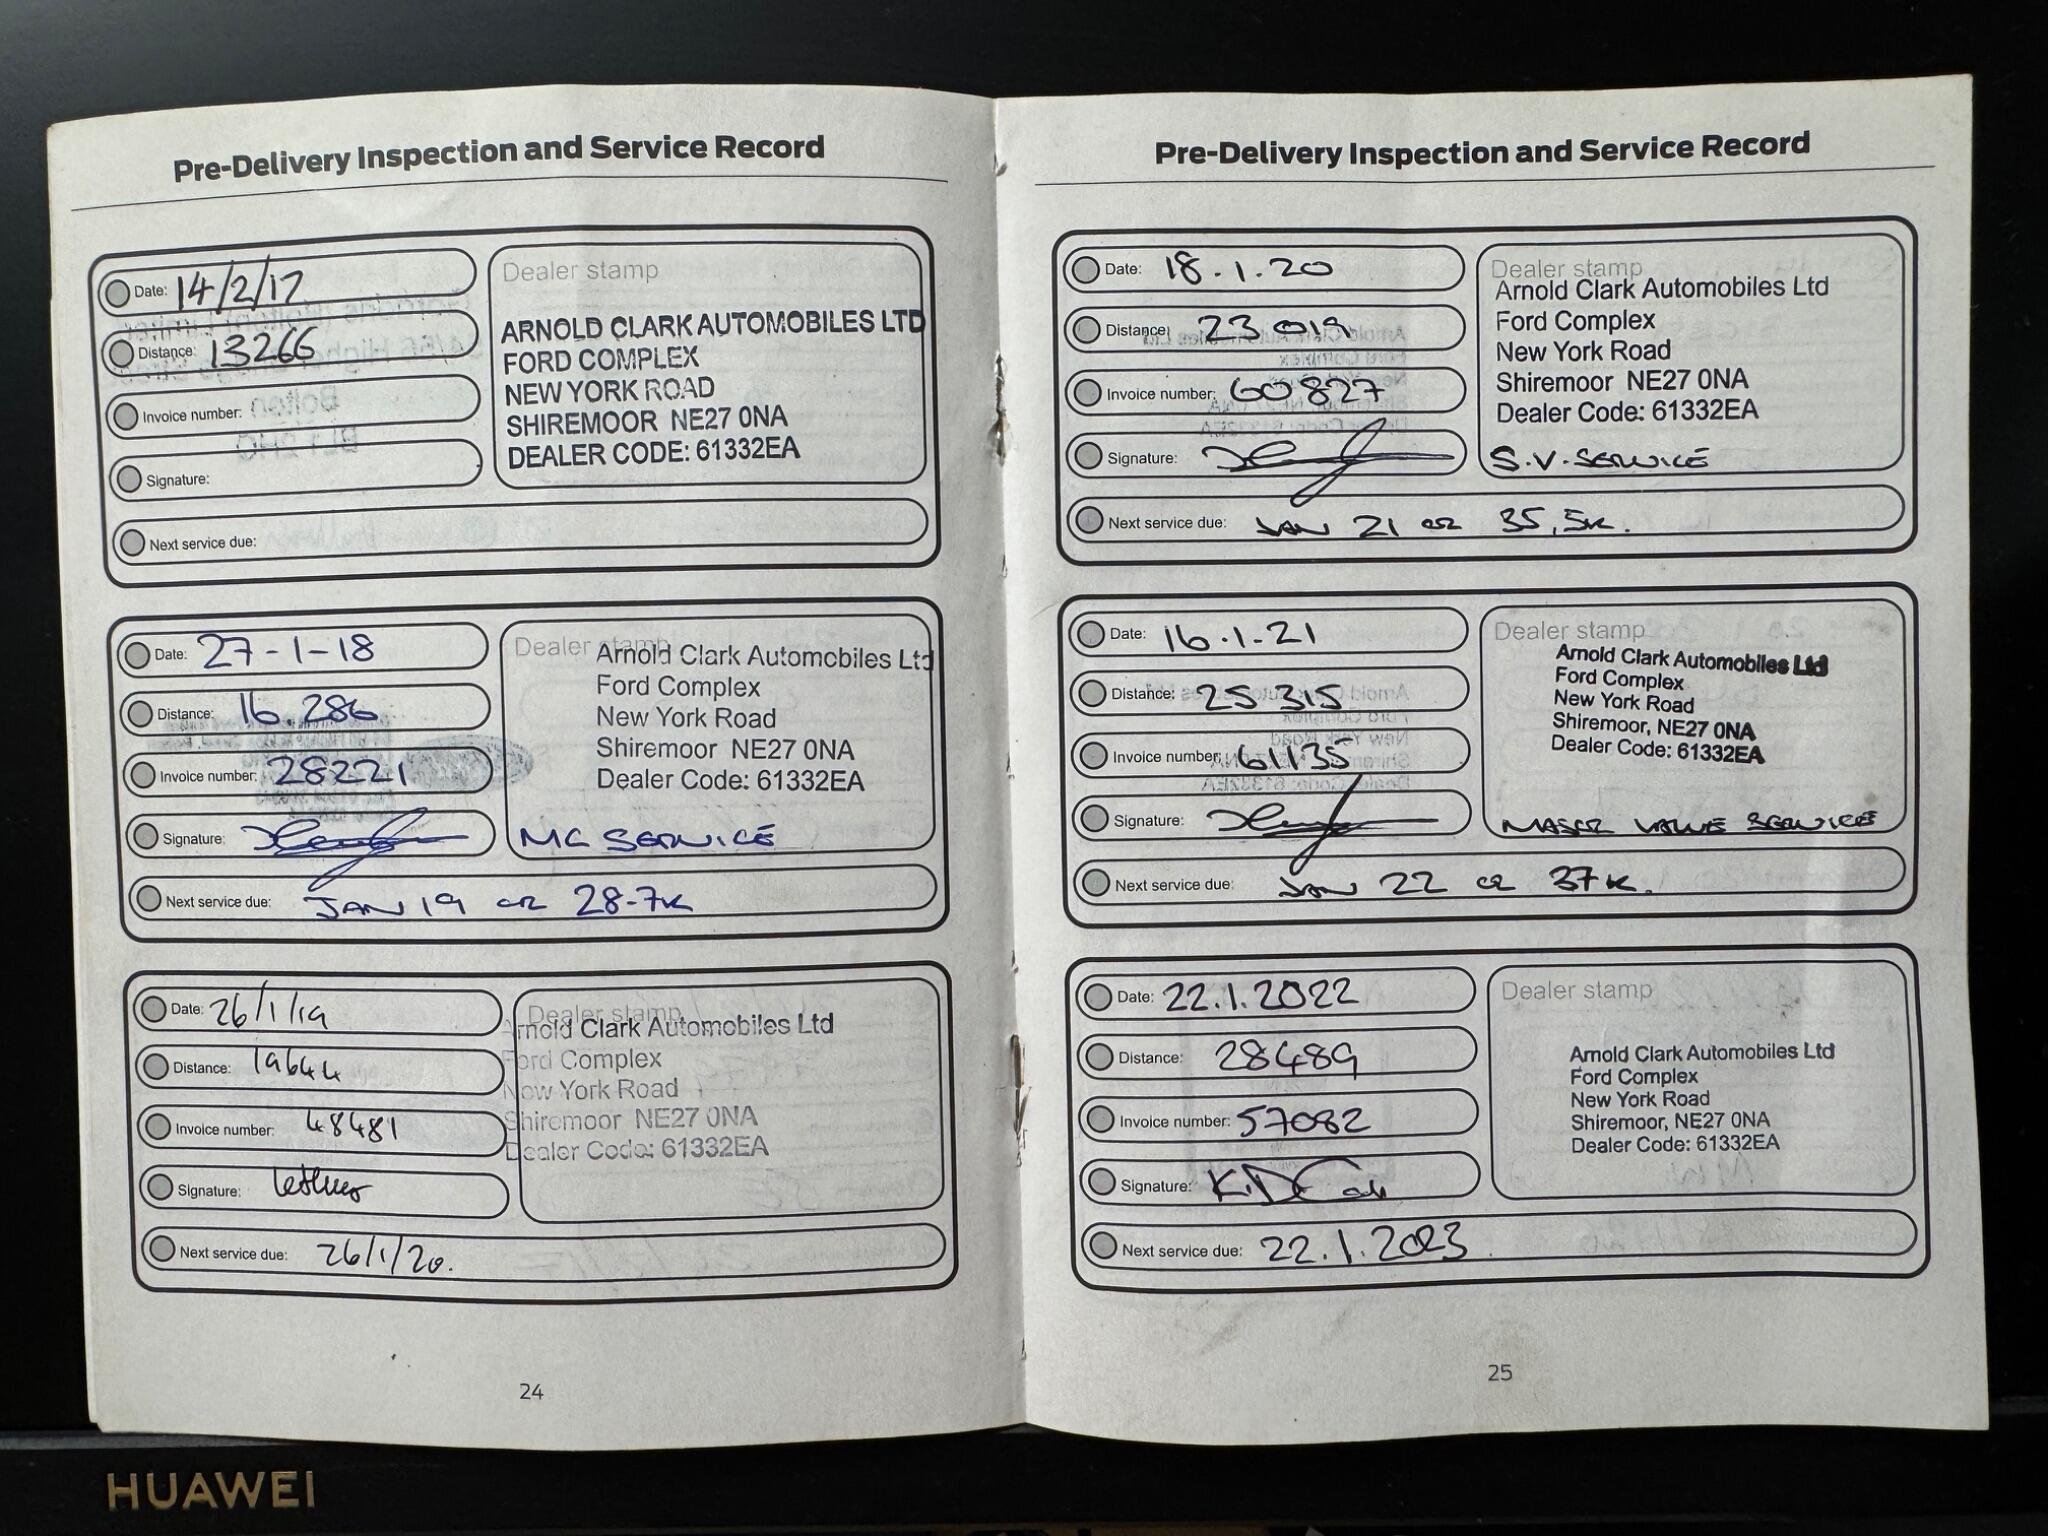 Pre-Delivery Inspection and Service Record
Date: 14/2/17
Distance: 13266
Invoice number:
Signature:
Next service due:
Dealer stamp
ARNOLD CLARK AUTOMOBILES LTD
FORD COMPLEX
NEW YORK ROAD
SHIREMOOR NE27 0NA
DEALER CODE: 61332EA
Date: 27-1-18
Distance: 16.286
Invoice number: 28221
Signature:
Next service due: JAN 19 OR 28-7K
Dealer stamp
Arnold Clark Automobiles Ltd
Ford Complex
New York Road
Shiremoor NE27 0NA
Dealer Code: 61332EA
MC SERVICE
Date: 26/1/19
Distance: 19644
Invoice number: 48481
Signature:
Next service due: 26/1/20.
Dealer stamp
Arnold Clark Automobiles Ltd
Ford Complex
New York Road
Shiremoor NE27 0NA
Dealer Code: 61332EA
24
Pre-Delivery Inspection and Service Record
Date: 18.1.20
Distance: 23019
Invoice number: 60827
Signature:
Next service due: JAN 21 OR 35,5K.
Dealer stamp
Arnold Clark Automobiles Ltd
Ford Complex
New York Road
Shiremoor NE27 0NA
Dealer Code: 61332EA
S.V. SERVICE
Date: 16.1.21
Distance: 25315
Invoice number: 61135
Signature:
Next service due: JAN 22 OR 37K.
Dealer stamp
Arnold Clark Automobiles Ltd
Ford Complex
New York Road
Shiremoor, NE27 0NA
Dealer Code: 61332EA
VALUE SERVICE
Date: 22.1.2022
Distance: 28489
Invoice number: 57082
Signature:
Next service due: 22.1.2023
Dealer stamp
Arnold Clark Automobiles Ltd
Ford Complex
New York Road
Shiremoor, NE27 0NA
Dealer Code: 61332EA
25
HUAWEI